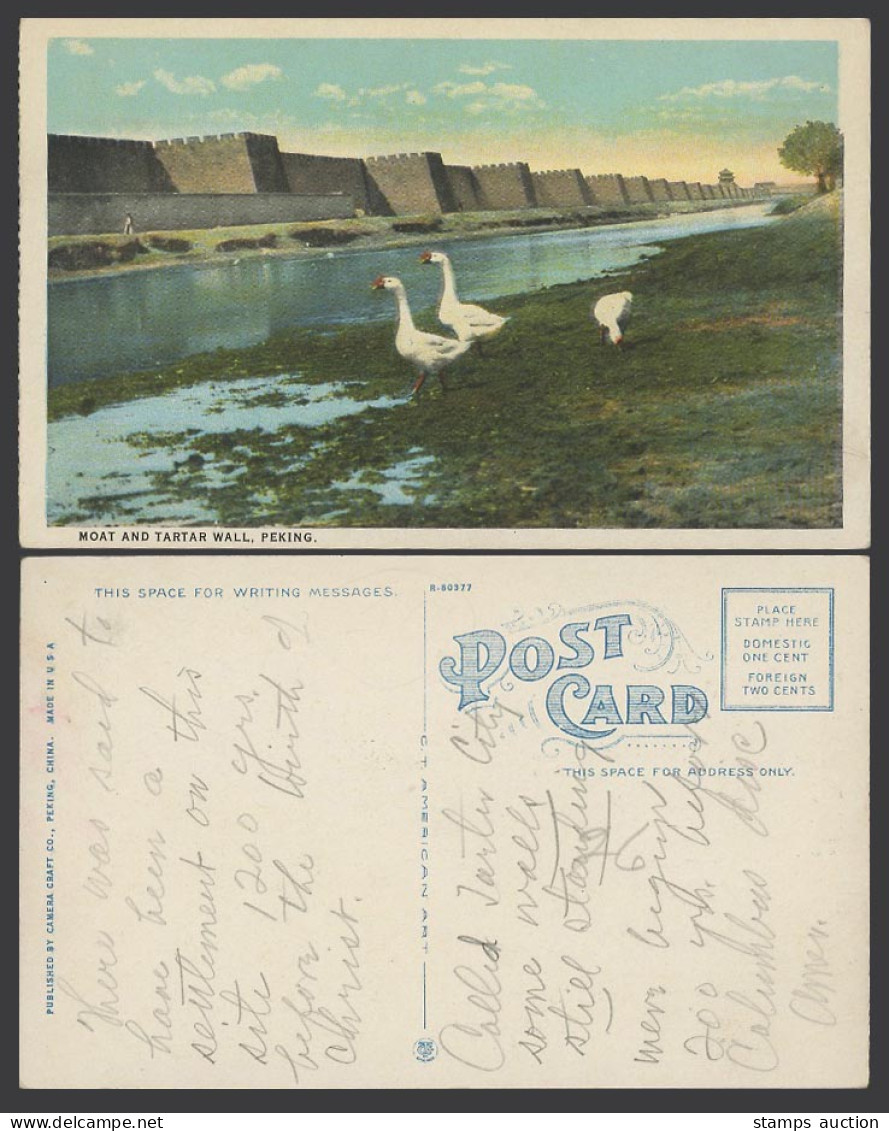 MOAT AND TARTAR WALL, PEKING.
THIS SPACE FOR WRITING MESSAGES.
R-80377
POST CARD
PLACE
STAMP HERE
DOMESTIC
ONE CENT
FOREIGN
TWO CENTS
THIS SPACE FOR ADDRESS ONLY.
PUBLISHED BY CAMERA CRAFT CO., PEKING, CHINA. MADE IN U S A
C. T. AMERICAN ART
There was said to
have been a
settlement on this
site 1200 yrs.
before the birth of
Christ.
Called Tarter City
some walls
still standing
were begun
200 yrs. before
Columbus disc
Amer.
stamps auction